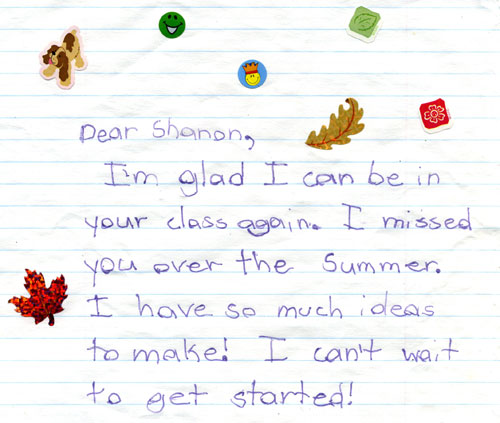 Dear Shanon,
I'm glad I can be in
your class again. I missed
you over the Summer.
I have so much ideas
to make! I can't wait
to get started!